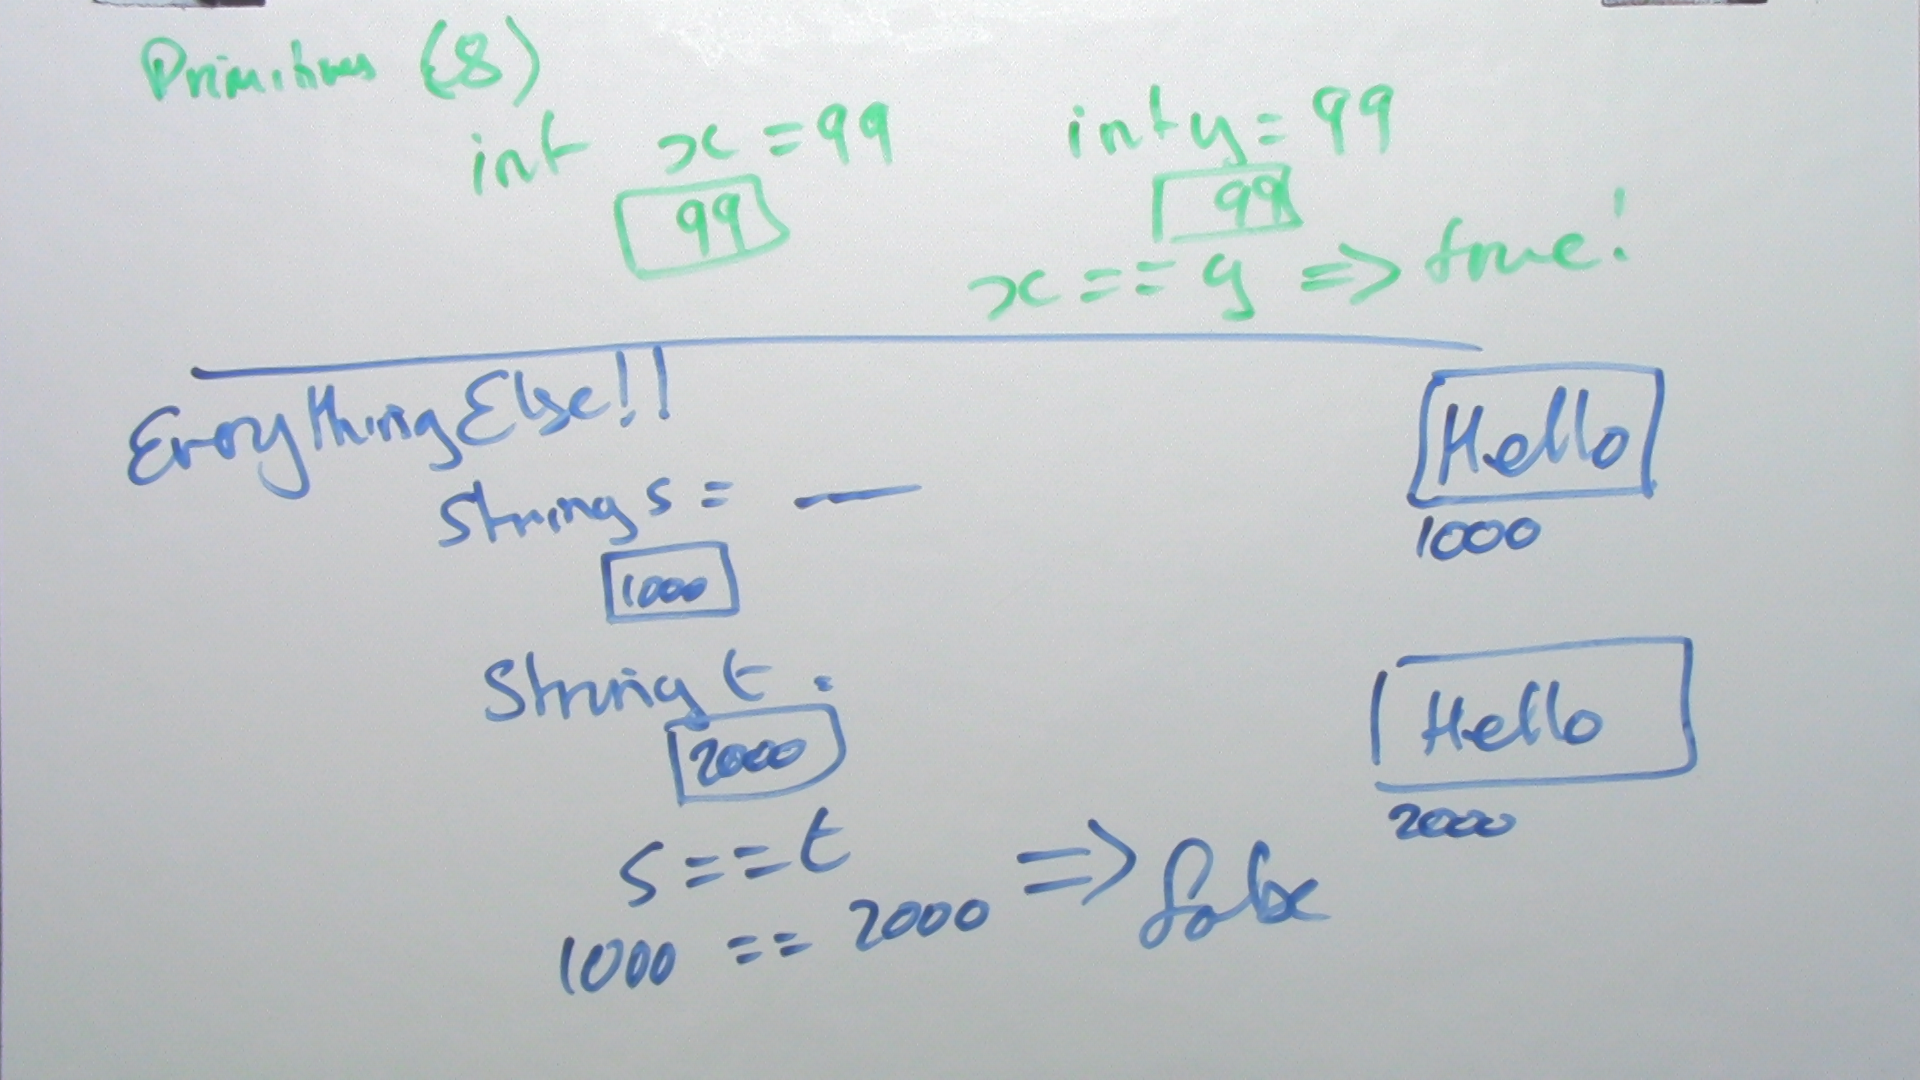 Primitives (8)
int x = 99
int y = 99
99
99
x == y => true!
Everything Else!!
String s = —
Hello
1000
1000
String t .
2000
Hello
2000
s == t
1000 == 2000 => false